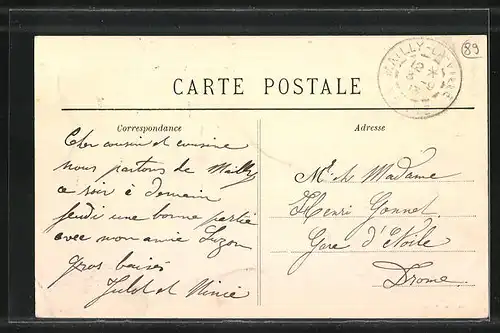 CARTE POSTALE
MAILLY-LA-VILLE
89
Correspondance
Cher cousin et cousine
nous partons de Mailly
ce soir à demain
jeudi une bonne partie
avec mon amie Suzon
gros baisés
Julot et Ninie
Adresse
Mr et Madame
Henri Gonnet
Gare d'Etoile
Drome